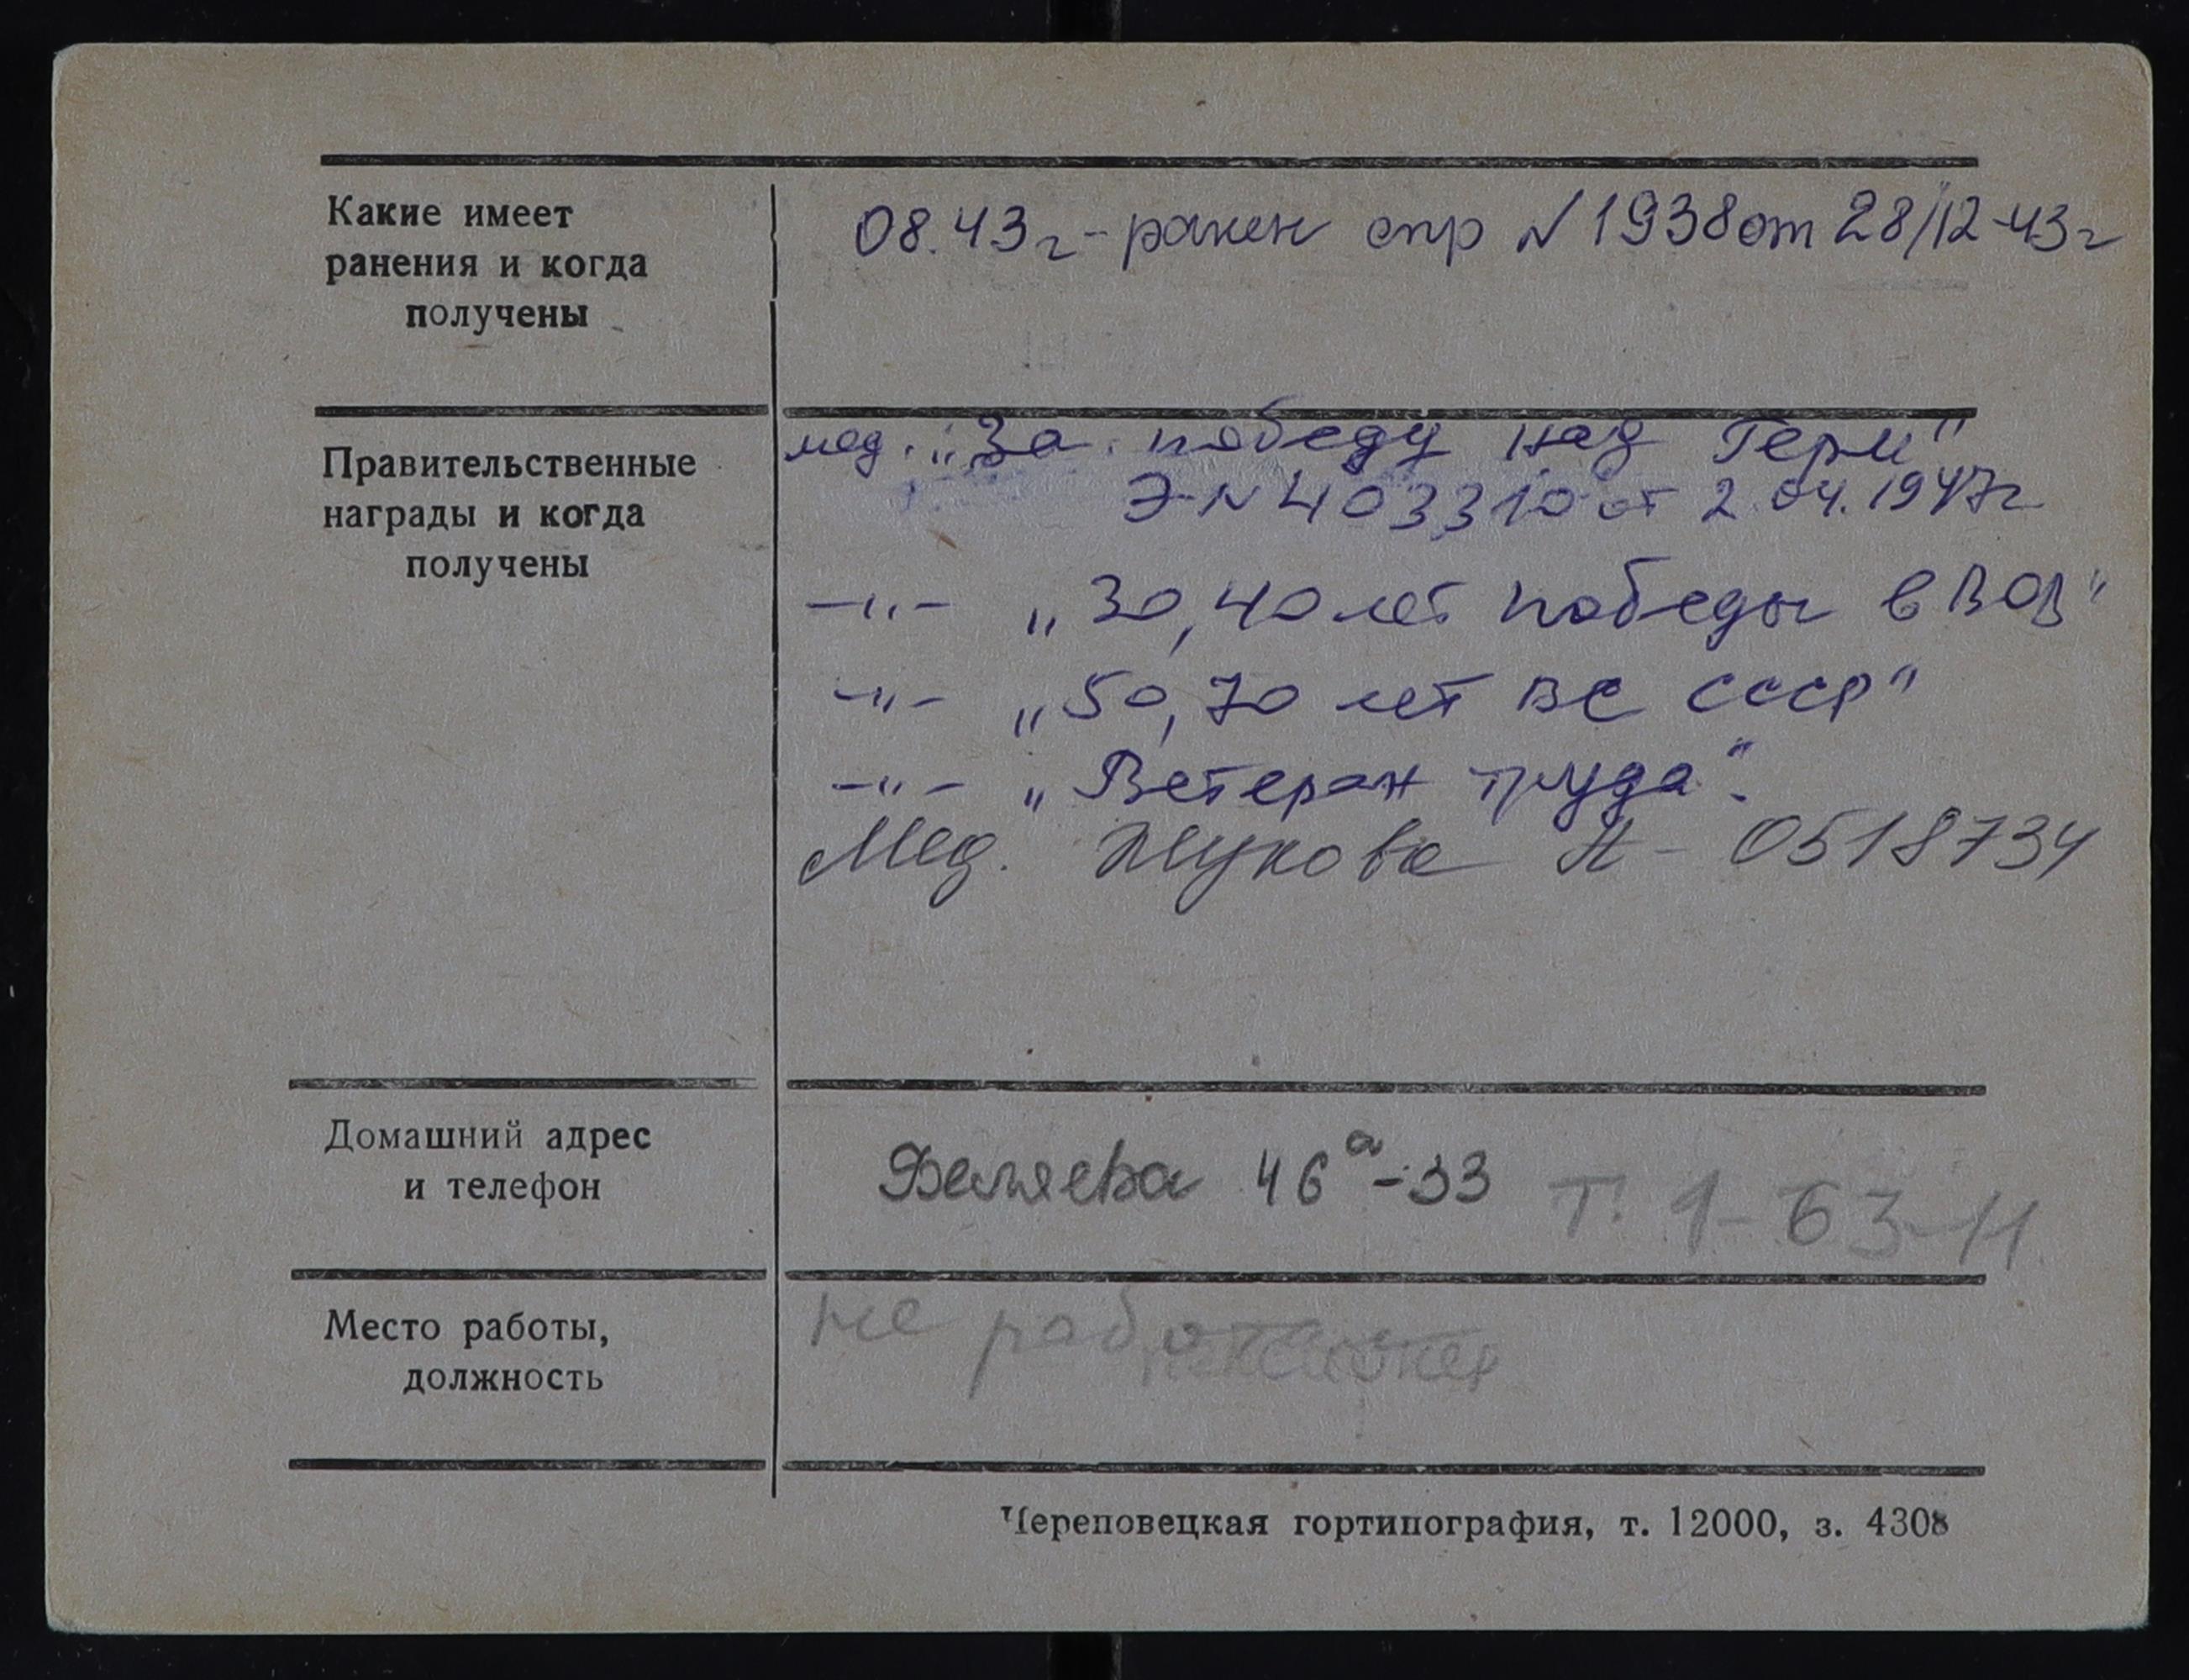 Какие имеет
ранения и когда
получены
08.43г-ранен спр №1938 от 28/12-43г
Правительственные
награды и когда
получены
мед. „За победу над Герм"
Э-N 403310 от 2.04.1947г
-"- „30, 40 лет победы в ВОВ"
-"- „50, 70 лет ВС СССР"
-"- „Ветеран труда".
Мед. Жукова А- 0518734
Домашний адрес
и телефон
Беляева 46а-33 Т. 1-63-11
Место работы,
должность
не работает
пенсионер
Череповецкая гортипография, т. 12000, з. 4308